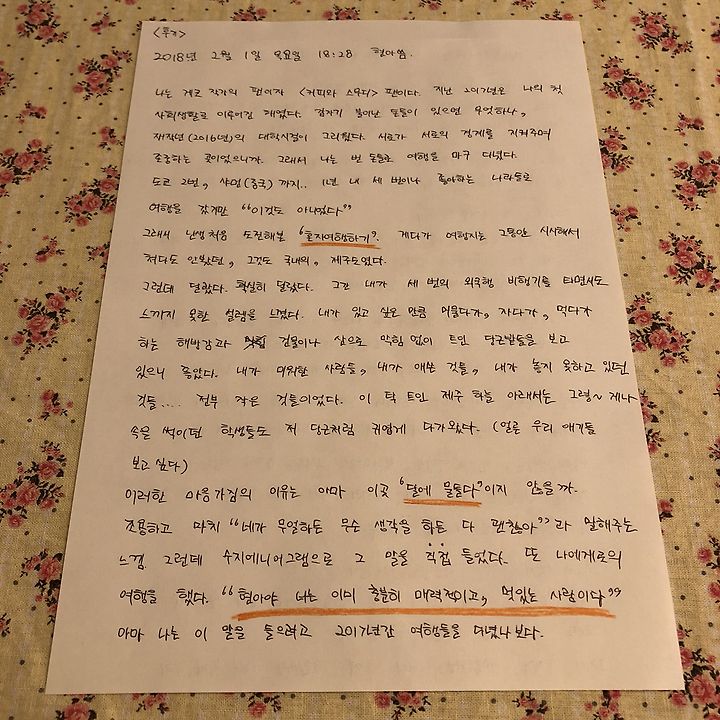 <후기>
2018년 2월 1일 목요일 18:28 현아씀.
나는 게코 작가의 팬이자 <커피와 스무디> 팬이다. 지난 2017년은 나의 첫
사회생활로 이루어진 해였다. 갑자기 불어난 돈들이 있으면 무엇하나,
재작년(2016년)의 대학시절이 그리웠다. 서로가 서로의 경계를 지켜주며
존중하는 곳이었으니까. 그래서 나는 번 돈들로 여행을 마구 다녔다.
도쿄 2번, 샤먼(중국) 까지.. 1년 내 세 번이나 좋아하는 나라들로
여행을 갔지만 "이것도 아니었다"
그래서 난생처음 도전해본 "혼자여행하기". 게다가 여행지는 그동안 시시해서
쳐다도 안봤던, 그것도 국내의, 제주도였다.
그런데 달랐다. 확실히 달랐다. 그간 내가 세 번의 외국행 비행기를 타면서도
느끼지 못한 설렘을 느꼈다. 내가 있고 싶은 만큼 머물다가, 자다가, 먹다가
하는 해방감과 건물이나 산으로 막힘 없이 트인 당근밭들을 보고
있으니 좋았다. 내가 미워한 사람들, 내가 애쓴 것들, 내가 놓지 못하고 있던
것들.... 전부 작은 것들이었다. 이 탁 트인 제주 하늘 아래서는 그렇~게나
속을 썩이던 학생들도 저 당근처럼 귀엽게 다가왔다. (얼른 우리 애기들
보고 싶다)
이러한 마음가짐의 이유는 아마 이곳 "달에 물들다"이지 않을까.
조용하고 마치 "네가 무얼하든 무슨 생각을 하든 다 괜찮아"라 말해주는
느낌 그런데 수지에니어그램으로 그 말을 직접 들었다. 또 나에게로의
여행을 했다. "현아야 너는 이미 충분히 매력적이고, 멋있는 사람이다"
아마 나는 이 말을 들으려고 2017년간 여행들을 다녔나보다.